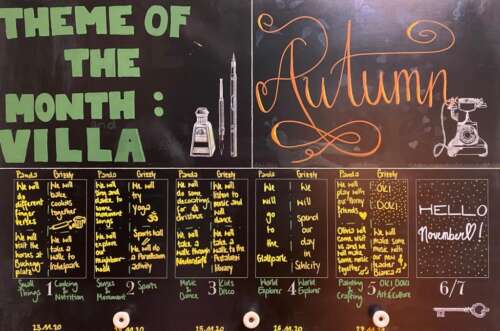 THEME OF
THE
MONTH :
VILLA
Autumn
Panda Grizzly Panda Grizzly Panda Grizzly Panda Grizzly Panda Grizzly
We will
do
different
finger
verses
We will
visit the
horses at
We will
bake
cookies
together
We will
take a
walk to
We will
sing and
dance to
We will
explore
our
neighbour-
We will
try
Yoga
Sports hall
We will do
a Parathalon
activity
We will
do some
decorating
for
christmas
We will
take a
walk through
We will
listen to
music
and
will
dance
We will
take a
walk to the
library
We
will
go
to
Globlpark
We
will
spend
our
day
in
Sihlcity
We will
play with
our Tonny
friends
Olivia will
come visit
us and we
will make
some music
together
Oki
Doki
We will
make some
music with
our new
teacher
Bianca
HELLO
November!
6/7
Small
Things
1 Cooking &
Nutrition
Songs &
Movement
2 Sports
Music &
Dance
3 Kids
Disco
World
Explorer
4 World
Explorer
Painting &
Crafting
5 Oki Doki
Art & Culture